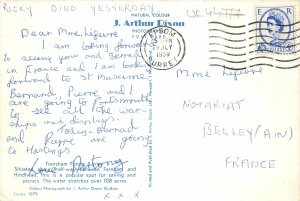 RICKY DIED YESTERDAY
UK 44777
NATURAL COLOUR
J. Arthur Dixon
Dear Mme. Lefevre
I am looking forward
to seeing you and Bernard
in France and I am looking
forward to St Maxime.
Bernard, Pierre and I
are going to Portsmouth
to see all the war-
ships and displays.
Today Bernard
and Pierre are going
to Hastings
Love
Frensham Pond,
Situated half-way between Farnham and
Hindhead. This is a popular spot for sailing and
picnics. The water stretches over 108 acres.
Colour Photograph by J. Arthur Dixon Studios.
x x x
EPSOM
JULY
1959
SURREY
E R
Mme Lefevre
NOTARIAT
BELLEY (AIN)
FRANCE